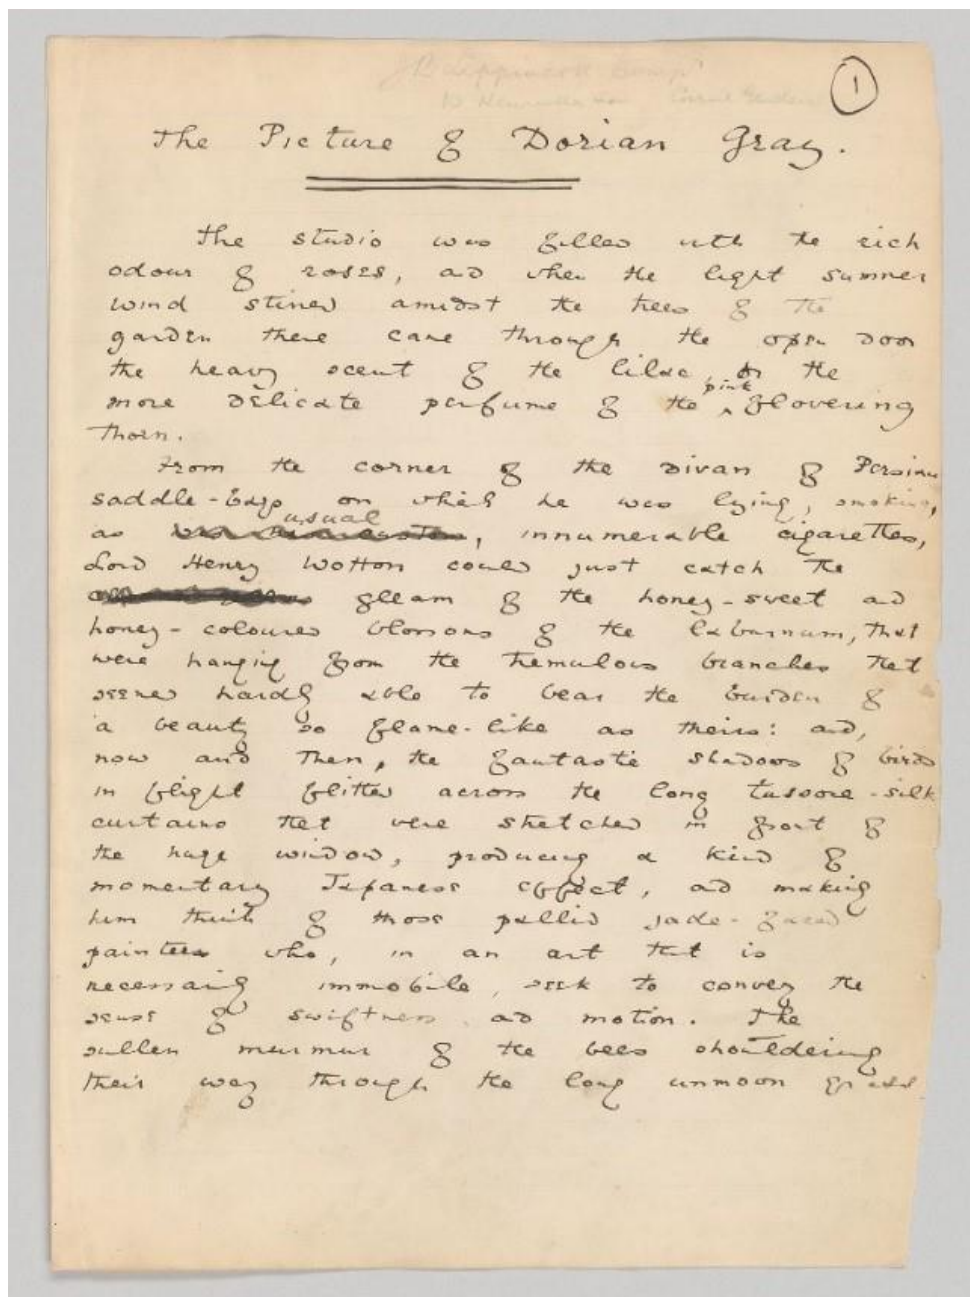 J B Lippincott Comp^y
1
The Picture of Dorian Gray.
The studio was filled with the rich
odour of roses, and when the light summer
wind stirred amidst the trees of the
garden there came through the open door
the heavy scent of the lilac, or the
more delicate perfume of the pink flowering
thorn.
From the corner of the divan of Persian
saddle-bags on which he was lying, smoking,
as usual, innumerable cigarettes,
Lord Henry Wotton could just catch the
gleam of the honey-sweet and
honey-coloured blossoms of the laburnum, that
were hanging from the tremulous branches that
seemed hardly able to bear the burden of
a beauty so flame-like as theirs: and,
now and then, the fantastic shadows of birds
in flight flitted across the long tussore-silk
curtains that were stretched in front of
the huge window, producing a kind of
momentary Japanese effect, and making
him think of those pallid jade-faced
painters who, in an art that is
necessarily immobile, seek to convey the
sense of swiftness and motion. The
sullen murmur of the bees shouldering
their way through the long unmown grass